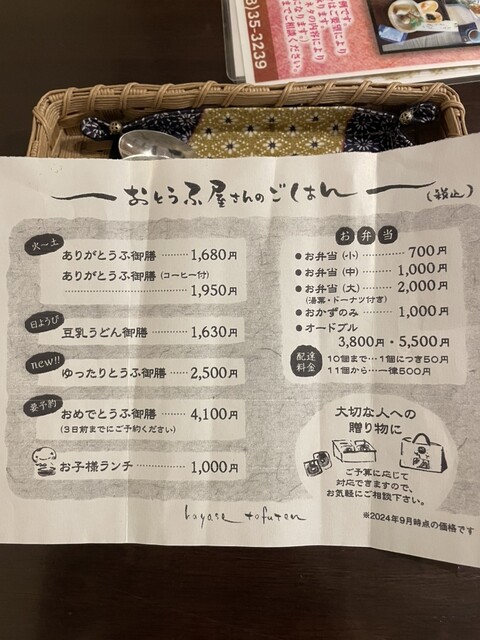 8)35-3239
例です。
は ご要望により
ネタの内容により
になります。)
までご相談ください。
おとうふ屋さんのごはん
(税込)
火〜土
ありがとうふ御膳 ……… 1,680円
ありがとうふ御膳 (コーヒー付)
……… 1,950円
日ようび
豆乳うどん御膳 ……… 1,630円
new!!
ゆったりとうふ御膳 …… 2,500円
要予約
おめでとうふ御膳 …… 4,100円
(3日前までにご予約ください)
お子様ランチ ……… 1,000円
お弁当
● お弁当 (小) ……… 700円
● お弁当 (中) ……… 1,000円
● お弁当 (大) ……… 2,000円
(湯葉・ドーナツ付き)
● おかずのみ ……… 1,000円
● オードブル
3,800円・5,500円
配達料金
10個まで…1個につき50円
11個から…一律500円
大切な人への
贈り物に
ご予算に応じて
対応できますので、
お気軽にご相談下さい。
hayase tofuten
※2024年9月時点の価格です